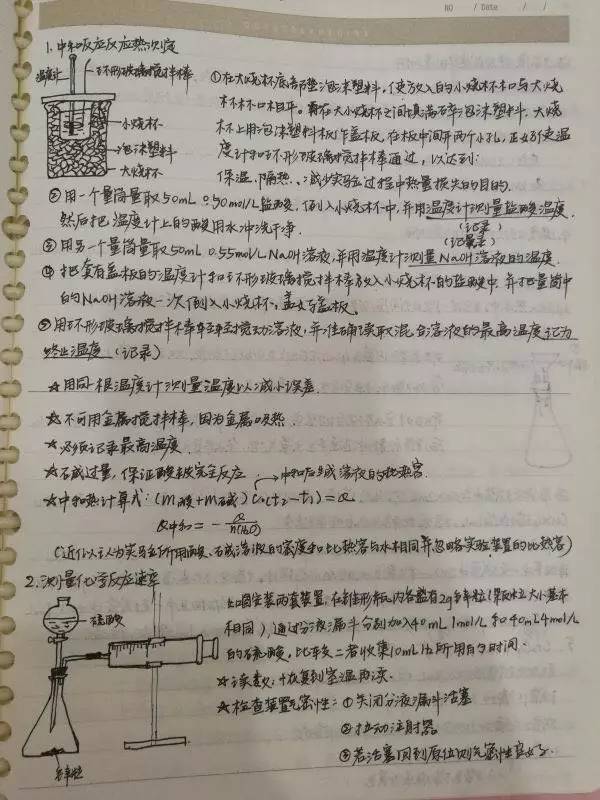 NO / Date / /
1.中和反应反应热测定
温度计
环形玻璃搅拌棒
小烧杯
泡沫塑料
大烧杯
①在大烧杯底部垫泡沫塑料,使放入的小烧杯杯口与大烧
杯杯口相平。再在大小烧杯之间填满碎泡沫塑料,大烧
杯上用泡沫塑料板作盖板,在板中间开两个小孔,正好使温
度计和环形玻璃搅拌棒通过,以达到
保温、隔热、减少实验过程中热量损失的目的.
②用一个量筒量取50mL 0.50mol/L盐酸,倒入小烧杯中,并用温度计测量盐酸温度.
(记录)
然后把温度计上的酸用水冲洗干净.
(记录)
③用另一个量筒量取50mL 0.55mol/L NaOH溶液,并用温度计测量NaOH溶液的温度.
④把套有盖板的温度计和环形玻璃搅拌棒放入小烧杯的盐酸中.并把量筒中
的NaOH溶液一次倒入小烧杯,盖好盖板.
⑤用环形玻璃搅拌棒轻轻搅动溶液,并准确读取混合溶液的最高温度记为
终止温度(记录)
☆用同一根温度计测量温度以减小误差.
☆不可用金属搅拌棒,因为金属吸热.
☆必须记录最高温度.
☆碱过量,保证酸被完全反应
中和后生成溶液的比热容.
☆中和热计算式:(m酸+m碱)c(t₂-t₁)=Q
Q中和=-Q/n(H₂O)
(近似认为实验所用酸、碱溶液的密度和比热容与水相同并忽略实验装置的比热容)
2.测量化学反应速率
硫酸
锌粒
如图安装两套装置,在锥形瓶内各盛有2g锌粒(颗粒大小基本
相同),通过分液漏斗分别加入40mL 1mol/L和40mL 4mol/L
的硫酸,比较二者收集10mL H₂所用的时间.
☆读数:恢复到室温再读.
☆检查装置气密性:①关闭分液漏斗活塞
②拉动注射器
③若活塞回到原位则气密性良好.